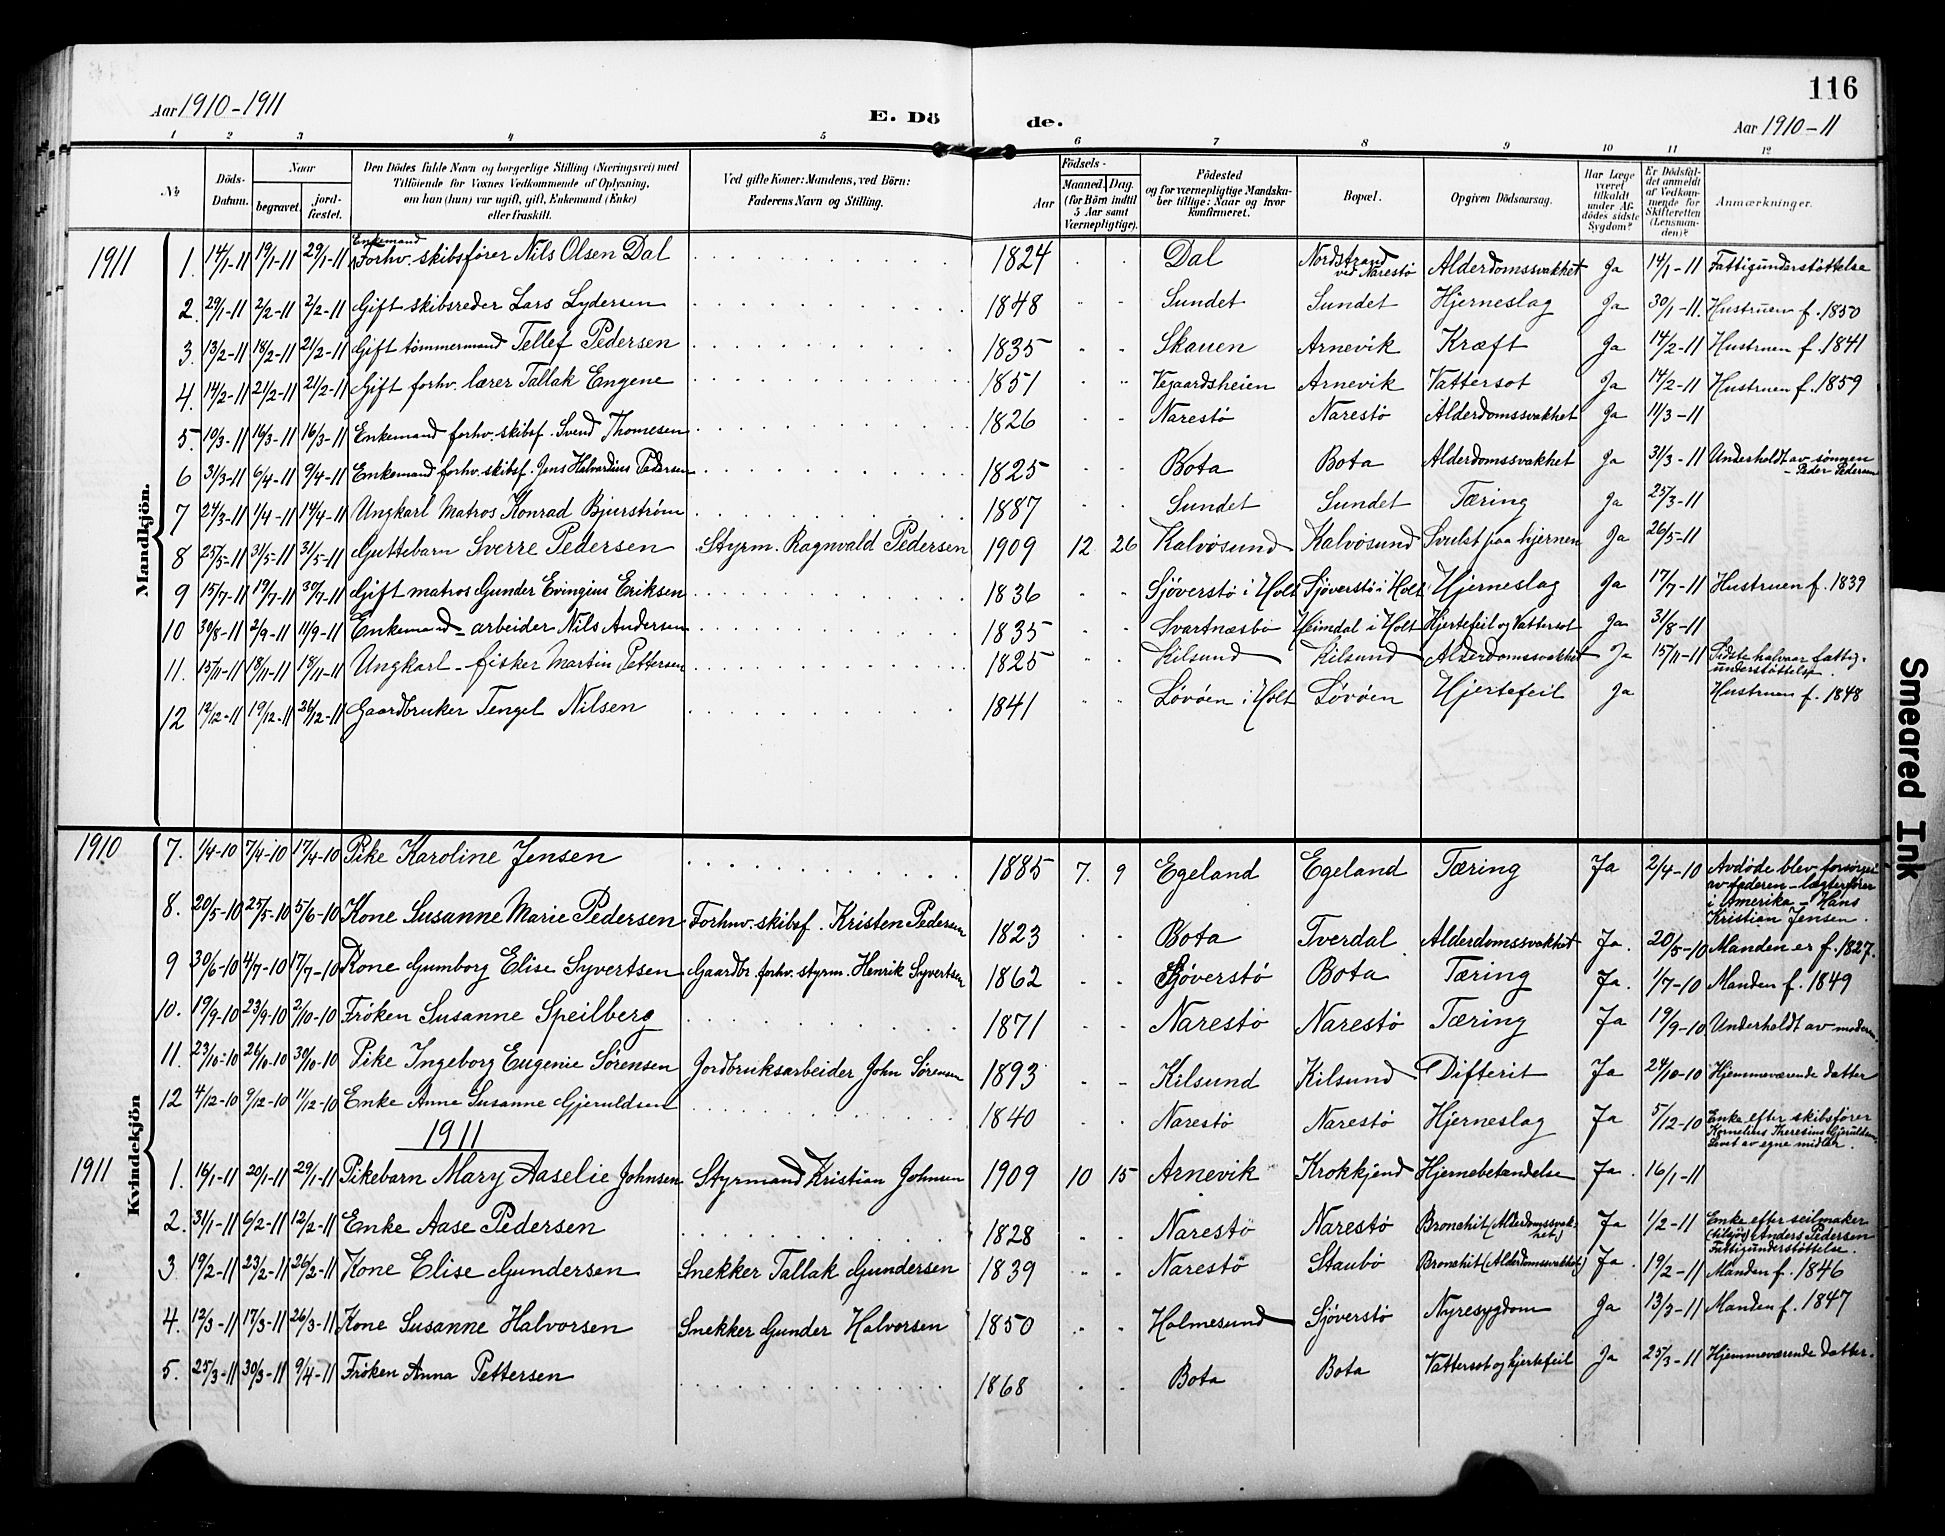 116
Aar 1910-1911
E. Dö de.
Aar 1910-11
1 2 3 4 5 6 7 8 9 10 11 12
№ Döds-Datum. Naar begravet. jord-fæstet. Den Dödes fulde Navn og borgerlige Stilling (Næringsvei) med Tilföiende for Voxnes Vedkommende af Oplysning, om han (hun) var ugift, gift, Enkemand (Enke) eller fraskilt. Ved gifte Koner: Mandens, ved Börn: Faderens Navn og Stilling. Aar Födsels- Maaned. Dag. (for Börn indtil 5 Aar samt Værnepligtige). Födested og for værnepligtige Mandskaber tillige: Naar og hvor konfirmeret. Bopæl. Opgiven Dödsaarsag. Har Læge været tilkaldt under Afdödes sidste Sygdom? Er Dödsfaldet anmeldt af Vedkommende for Skifteretten (Lensmanden)? Anmærkninger.
Mandkjön.
1911 1. 14/1-11 19/1-11 29/1-11 Enkemand Forhv. skibsfører Nils Olsen Dal 1824 Dal Nordstrand ved Narestø Alderdomssvakhet Ja 14/1-11 Fattigunderstøttelse
2. 29/1-11 2/2-11 2/2-11 Gift skibsreder Lars Lydersen 1848 Sundet Sundet Hjerneslag Ja 30/1-11. Hustruen f. 1850
3. 13/2-11 18/2-11 21/2-11 Gift tömmermand Tellef Pedersen 1835 Skauen Arnevik Kræft Ja 14/2-11 Hustruen f. 1841
4. 14/2-11 21/2-11 21/2-11 Gift forhv. lærer Tallak Engene 1851 Vegaardsheien Arnevik Vattersot Ja 14/2-11 Hustruen f. 1859
5 10/3-11 16/3-11 16/3-11 Enkemand forhv. skibsf. Svend Thomesen 1826 Narestö Narestö Alderdomssvakhet Ja 11/3-11
6 31/3-11 6/4-11 9/4-11 Enkemand forhv. skibsf. Jens Halvardius Pedersen 1825 Bota Bota Alderdomssvakhet Ja 31/3-11 Underholdt av sönnen - Peder Pedersen
7 24/3-11 1/4-11 14/4-11 Ungkarl Matros Konrad Bjurström 1887 Sundet Sundet Tæring Ja 25/3-11
8 25/5-11 31/5-11 31/5-11 Guttebarn Sverre Pedersen Styrm. Ragnvald Pedersen 1909 12 26 Kalvösund Kalvösund Svulst paa hjernen Ja 26/5-11
9 15/7-11 19/7-11 30/7-11 Gift matros Gunder Evingius Eriksen 1836 Sjöverstö i Holt Sjöverstö i Holt Hjerneslag Ja 17/7-11 Hustruen f. 1839
10 30/8-11 2/9-11 11/9-11 Enkemand - arbeider Nils Andersen 1835 Svartnæsbö Heimdal i Holt Hjertefeil og Vattersot Ja 31/8-11
11. 15/11-11 18/11-11 18/11-11 Ungkarl - fisker Martin Pettersen 1825 Kilsund Kilsund Alderdomssvakhet Ja 15/11-11 Sidste halvaar fattigunderstøttelse.
12 12/12-11 19/12-11 26/12-11 Gaardbruker Tengel Nilsen 1841 Lövöen i Holt Lövöen Hjertefeil Ja Hustruen f. 1848
Kvindekjön
1910 7. 1/4-10 7/4-10 17/4-10 Pike Karoline Jensen 1885 7. 9 Egeland Egeland Tæring Ja 2/4-10 Avdöde blev forsörget av faderen - lægterfører i Amerika - Hans Kristian Jensen.
8. 20/5-10 25/5-10 5/6-10 Kone Susanne Marie Pedersen Forhv. skibsf. Kristen Pedersen 1823 Bota Tverdal Alderdomssvakhet Ja. 20/5-10 Manden er f. 1827.
9 30/6-10 4/7-10 17/7-10 Kone Gumborg Elise Syvertsen Gaardbr. forhv. styrm. Henrik Syvertsen 1862 Sjöverstö Bota Tæring Ja. 1/7-10 Manden f. 1849
10. 19/9-10 23/9-10 2/10-10 Fröken Susanne Speilberg 1871 Narestö Narestö Tæring Ja 19/9-10 Underholdt av moderen.
11. 23/10-10 26/10-10 30/10-10 Pike Ingeborg Eugenie Sörensen Jordbruksarbeider John Sörensen 1893 Kilsund Kilsund Difterit Ja 24/10-10 Hjemmeværende datter
12 4/12-10 9/12-10 11/12-10 Enke Anne Susanne Gjeruldsen 1840 Narestö Narestö Hjerneslag Ja 5/12-10 Enke efter skibsfører Kornelius Theresius Gjeruldsen. Levet av egne midler.
1911
1911 1. 16/1-11 20/1-11 29/1-11 Pikebarn Mary Aaselie Johnsen Styrmand Kristian Johnsen 1909 10 15 Arnevik Krokkjend Hjernebetændelse Ja. 16/1-11
2. 31/1-11 6/2-11 12/2-11 Enke Aase Pedersen 1828 Narestö Narestö Bronchit (Alderdomssvakhet) Ja 1/2-11 Enke efter seilmaker (tilsjös) Anders Pedersen Fattigunderstøttelse.
3 19/2-11 23/2-11 26/2-11 Kone Elise Gundersen Snekker Tallak Gundersen 1839 Narestö Staubö Bronchit (Alderdomssvakhet) Ja. 19/2-11 Manden f. 1846
4. 12/3-11 17/3-11 26/3-11 Kone Susanne Halvorsen Snekker Gunder Halvorsen 1850 Holmesund Sjöverstö Nyresygdom Ja 13/3-11 Manden f. 1847
5. 25/3-11 30/3-11 9/4-11 Fröken Anna Pettersen 1868 Bota Bota Vattersot og hjertefeil Ja 25/3-11 Hjemmeværende datter.
Smeared Ink